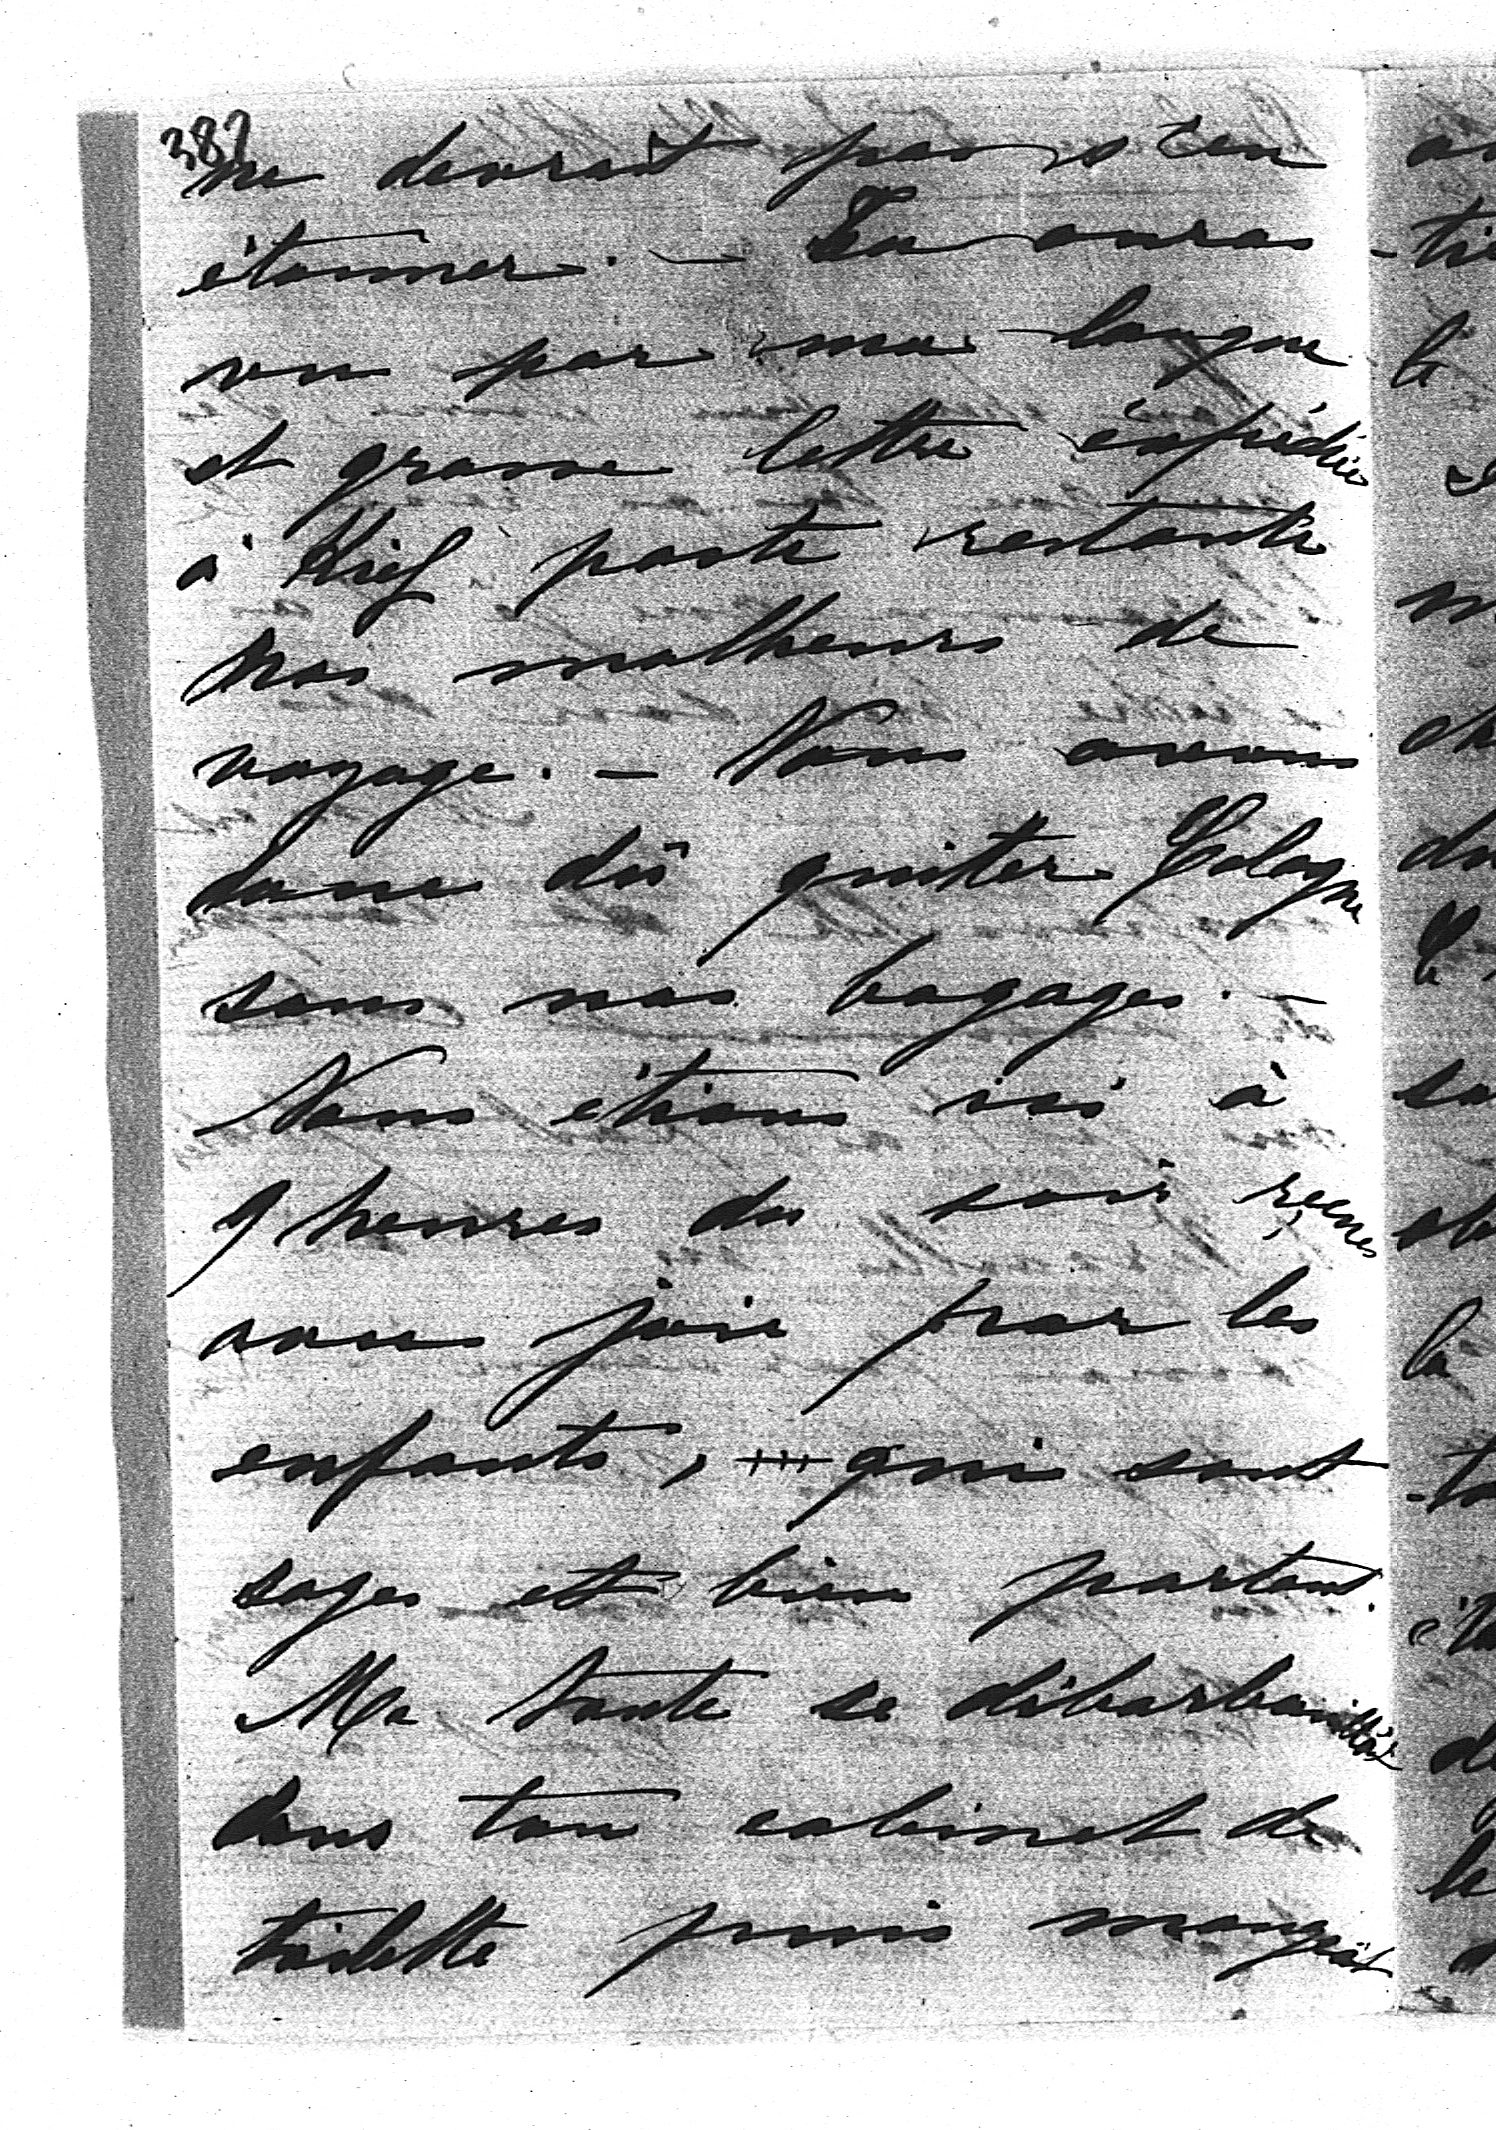 382
ne devrait pas s'en
étonner. — Tu auras
vu par ma longue
et grosse lettre expédiée
à Kief poste restante
nos malheurs de
voyage. — Nous avons
donc dû quitter Cologne
sans nos bagages. —
Nous étions ici à
9 heures du soir reçues
avec joie par les
enfants, qui sont
sages et bien portant.
Ma tante se débarbouillât
dans ton cabinet de
toilette puis mangeât